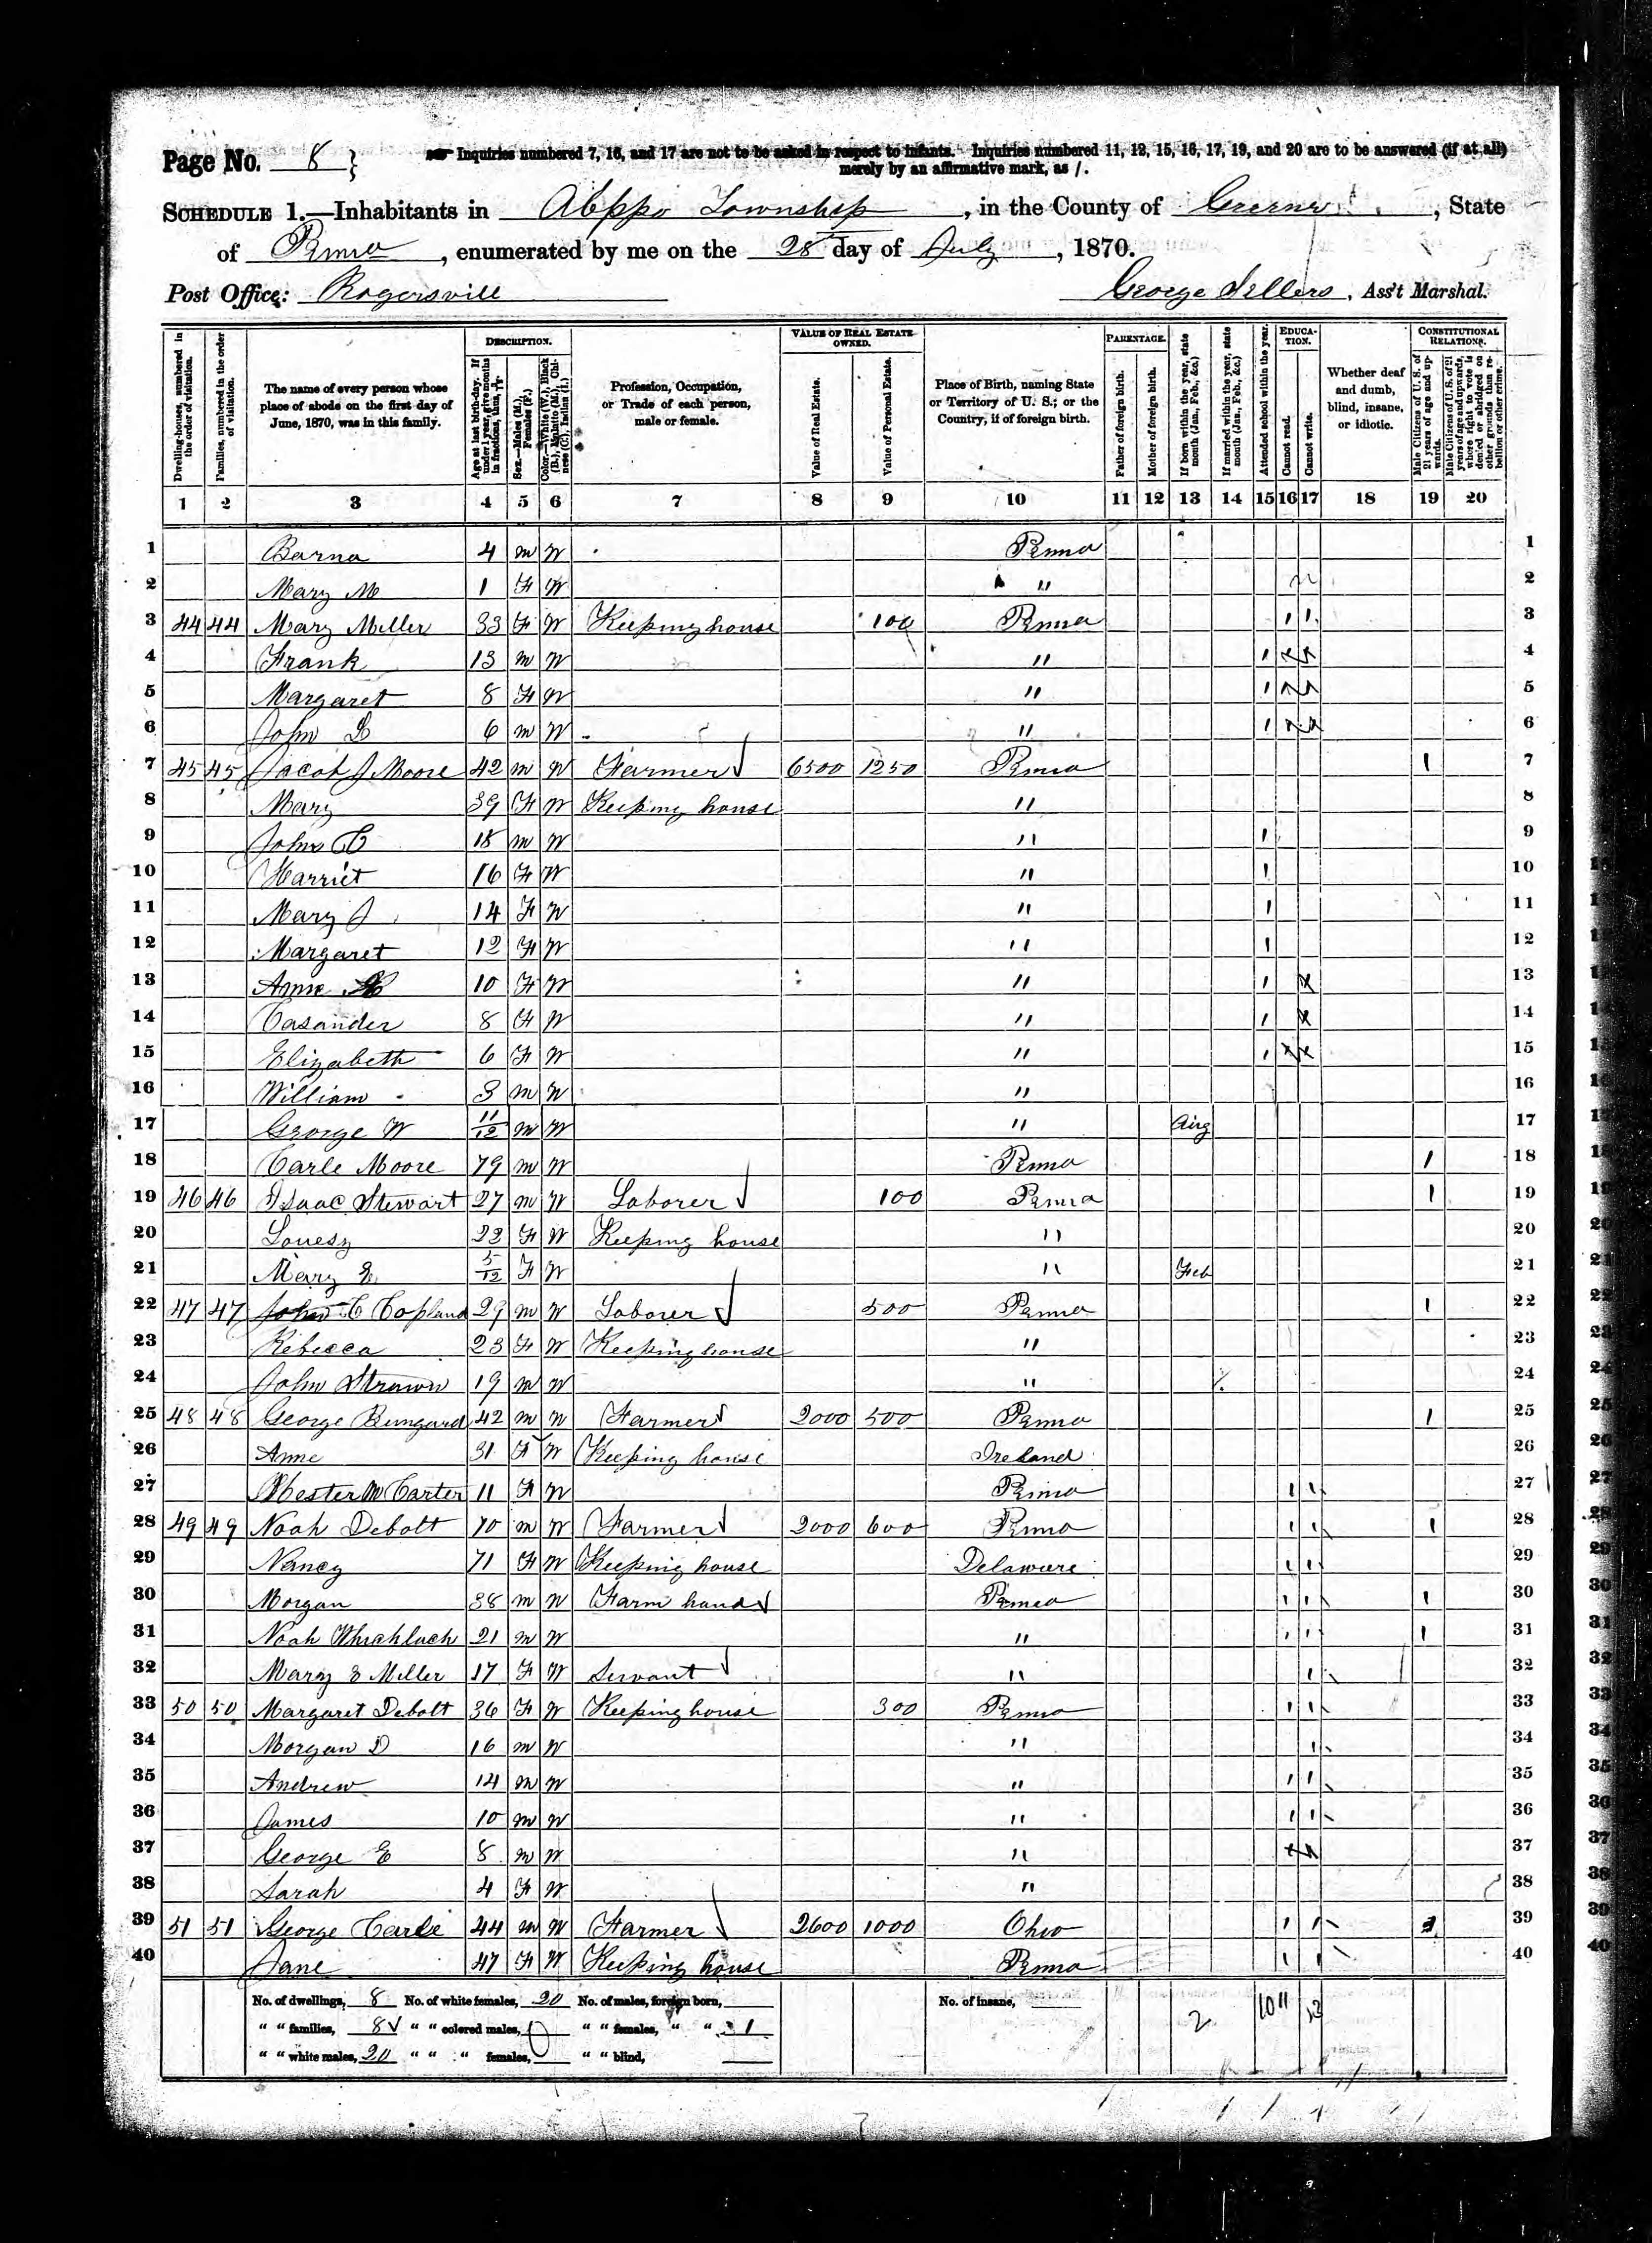 Page No. 8 }
Inquiries numbered 7, 16, and 17 are not to be asked in respect to infants. Inquiries numbered 11, 12, 15, 16, 17, 19, and 20 are to be answered (if at all)
merely by an affirmative mark, as /.
SCHEDULE 1.—Inhabitants in Aleppo Township, in the County of Greene, State
of Penna, enumerated by me on the 28 day of July, 1870.
Post Office: Rogersvill George Sellers, Ass't Marshal.
Dwelling-houses, numbered in the order of visitation.
Families, numbered in the order of visitation.
The name of every person whose place of abode on the first day of June, 1870, was in this family.
DESCRIPTION.
Age at last birth-day. If under 1 year, give months in fractions, thus, 3/12.
Sex.—Males (M.), Females (F.)
Color.—White (W.), Black (B.), Mulatto (M.), Chinese (C.), Indian (I.)
Profession, Occupation, or Trade of each person, male or female.
VALUE OF REAL ESTATE OWNED.
Value of Real Estate.
Value of Personal Estate.
Place of Birth, naming State or Territory of U. S.; or the Country, if of foreign birth.
PARENTAGE.
Father of foreign birth.
Mother of foreign birth.
If born within the year, state month (Jan., Feb., &c.)
If married within the year, state month (Jan., Feb., &c.)
Attended school within the year.
EDUCATION.
Cannot read.
Cannot write.
Whether deaf and dumb, blind, insane, or idiotic.
CONSTITUTIONAL RELATIONS.
Male Citizens of U. S. of 21 years of age and upwards.
Male Citizens of U. S. of 21 years of age and upwards, where right to vote is denied or abridged on other grounds than rebellion or other crime.
1 2 3 4 5 6 7 8 9 10 11 12 13 14 15 16 17 18 19 20
1 Barna 4 m W Penna 1
2 Mary M 1 F W " 2
3 44 44 Mary Miller 33 F W Keeping house 100 Penna 1 1 3
4 Frank 13 m W " 1 x x 4
5 Margaret 8 F W " 1 5
6 John L 6 m W " 1 6
7 45 45 Jacob J Moore 42 m W Farmer 6500 1250 Penna 1 7
8 Mary 39 F W Keeping house " 8
9 John C 18 m W " 1 9
10 Harriet 16 F W " 1 10
11 Mary J 14 F W " 1 11
12 Margaret 12 F W " 1 12
13 Anne 10 F W " 1 x 13
14 Casander 8 F W " 1 x 14
15 Elizabeth 6 F W " 1 x x 15
16 William 3 m W " 16
17 George W 11/12 m W " Aug 17
18 Carle Moore 79 m W Penna 1 18
19 46 46 Isaac Stewart 27 m W Laborer 100 Penna 1 19
20 Louesy 23 F W Keeping house " 20
21 Mary E 5/12 F W " Feb 21
22 47 47 John C Copland 29 m W Laborer 500 Penna 1 22
23 Rebecca 23 F W Keeping house " 23
24 John Strawn 19 m W " 24
25 48 48 George Bungard 42 m W Farmer 2000 500 Penna 1 25
26 Anne 31 F W Keeping house Ireland 26
27 Hester M Carter 11 F W Penna 1 1 27
28 49 49 Noah Debolt 70 m W Farmer 2000 600 Penna 1 1 1 28
29 Nancy 71 F W Keeping house Delaware 1 1 29
30 Morgan 38 m W Farm hand Penna 1 1 1 30
31 Noah 21 m W " 1 1 1 31
32 Mary E Miller 17 F W Servant " 1 32
33 50 50 Margaret Debolt 36 F W Keeping house 300 Penna 1 1 33
34 Morgan D 16 m W " 1 34
35 Andrew 14 m W " 1 1 35
36 James 10 m W " 1 1 36
37 George E 8 m W " x x 37
38 Sarah 4 F W " 38
39 51 51 George Carle 44 m W Farmer 2600 1000 Ohio 1 1 1 39
40 Jane 47 F W Keeping house Penna 1 1 40
No. of dwellings, 8 No. of white females, 20 No. of males, foreign born, No. of insane,
" " families, 8 " " colored males, 0 " " females, " " 1 2 10 11 13
" " white males, 20 " " " females, " " blind,